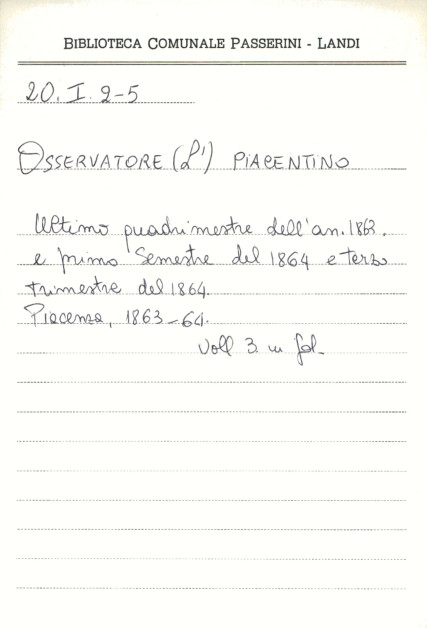 BIBLIOTECA COMUNALE PASSERINI - LANDI
20. I. 2-5
OSSERVATORE (L') PIACENTINO
Ultimo quadrimestre dell'an. 1863.
e primo Semestre del 1864 e terzo
trimestre del 1864.
Piacenza, 1863-64.
Voll 3 in fol.